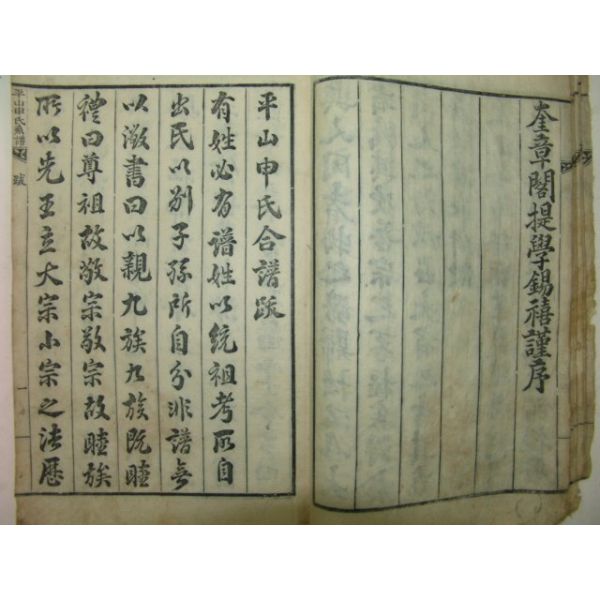 奎章閣提學錫禧謹序
平山申氏合譜跋
有姓必有譜姓以統祖考所自
出氏以别子孫所自分非譜無
以徵書曰以親九族九族既睦
禮曰尊祖故敬宗敬宗故睦族
所以先王立大宗小宗之法歷
平山申氏系譜 跋